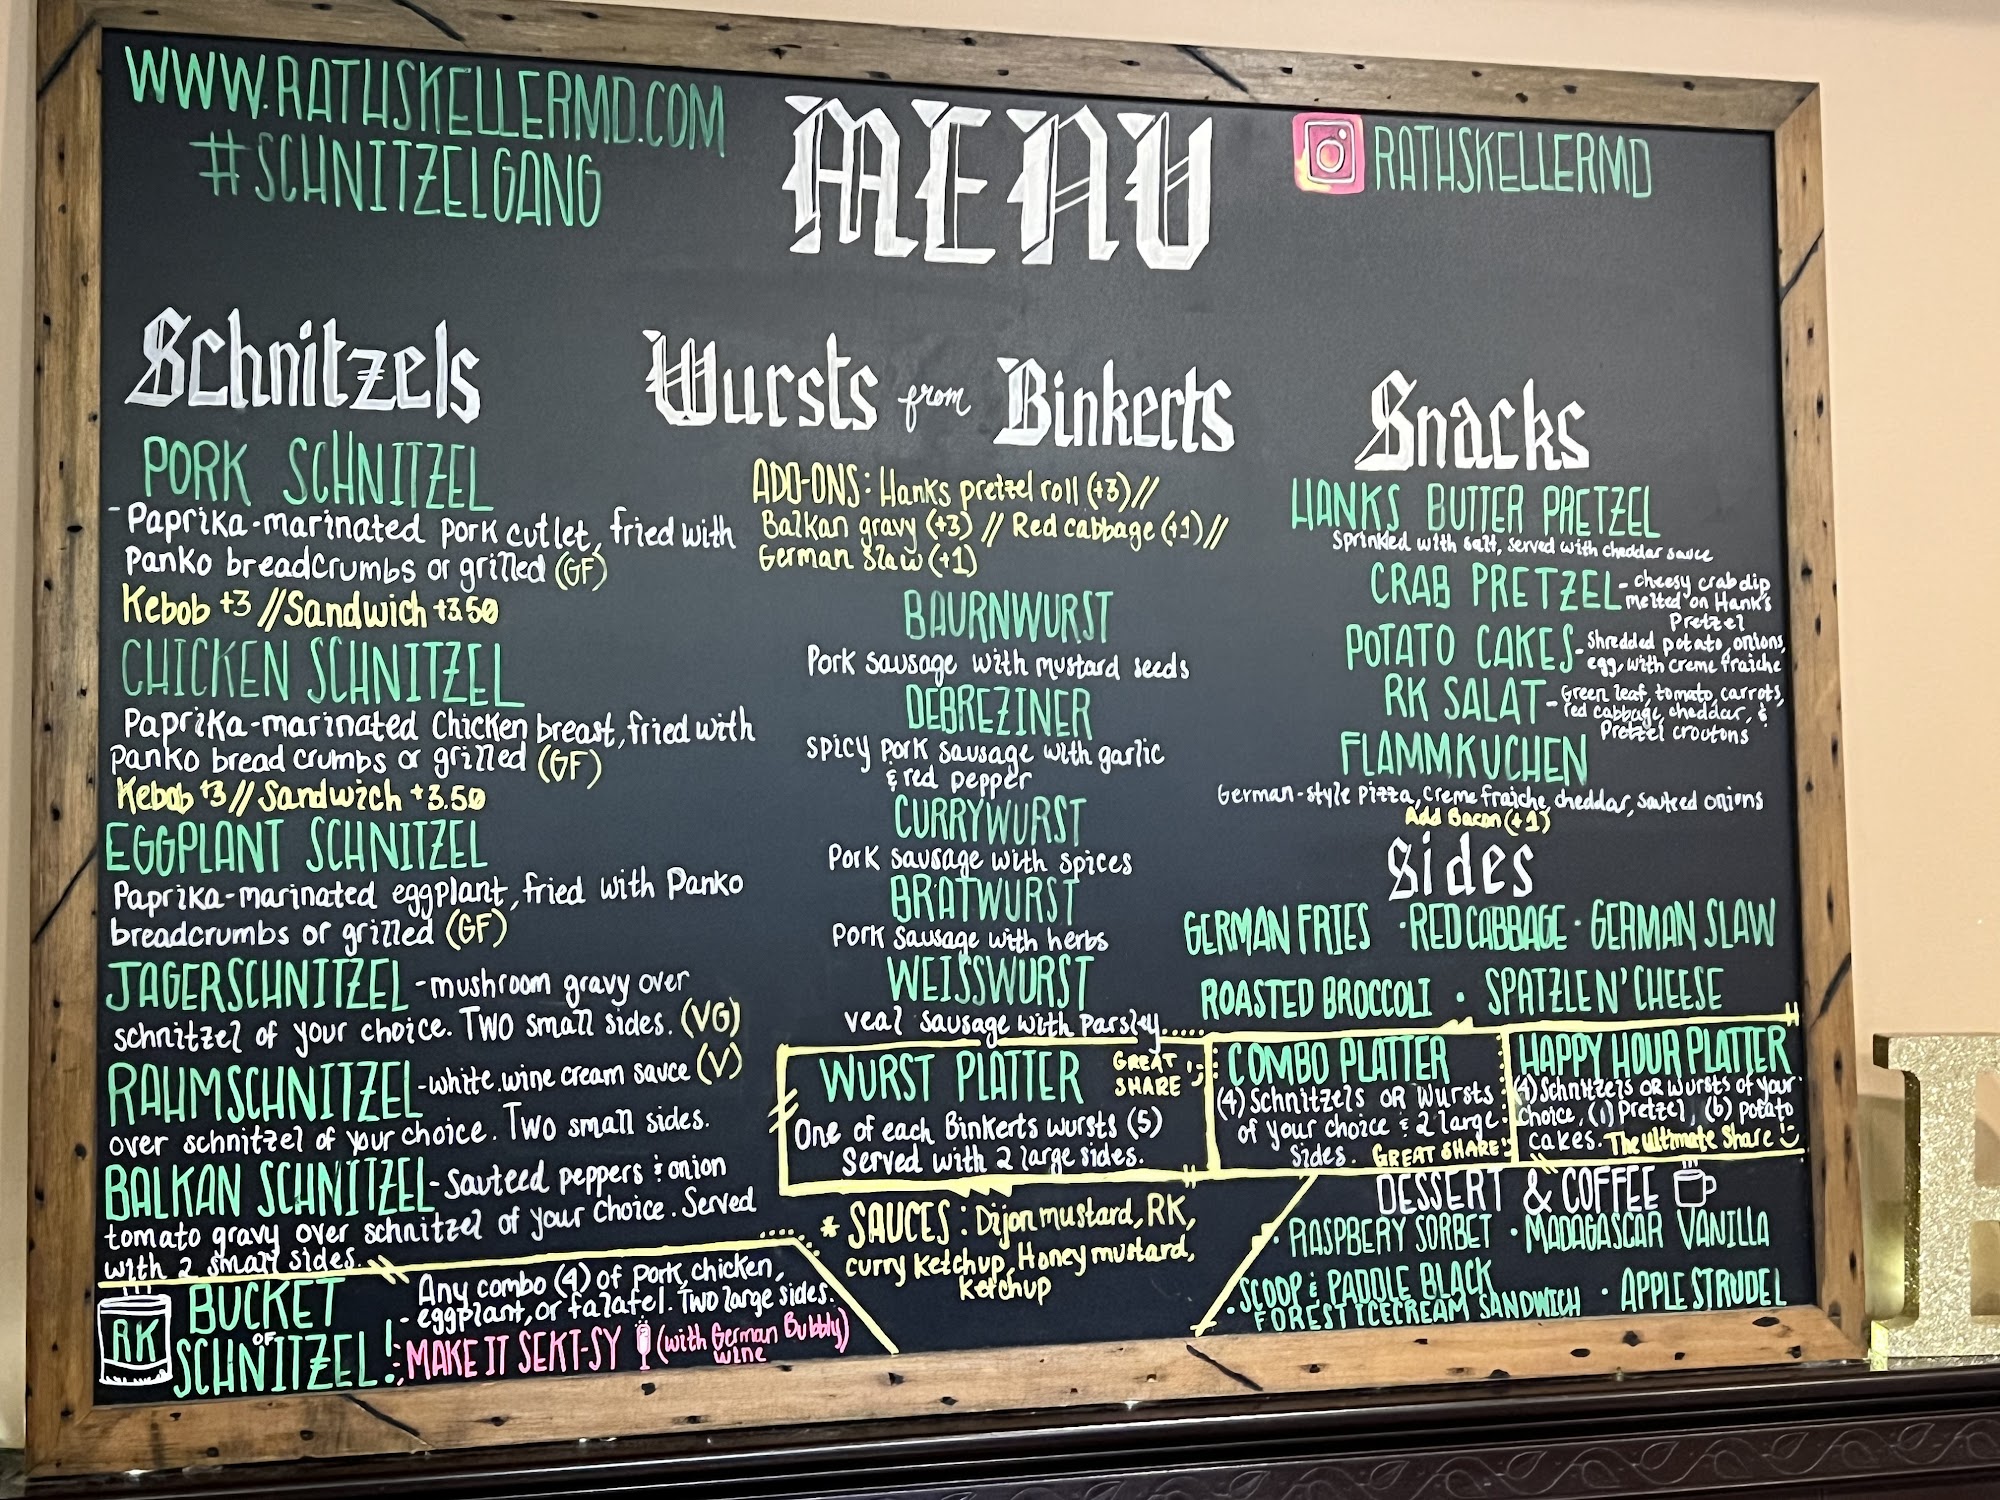 WWW.RATHSKELLERMD.COM
#SCHNITZELGANG
MENU
RATHSKELLERMD
Schnitzels
PORK SCHNITZEL
-Paprika-marinated pork cutlet, fried with
Panko breadcrumbs or grilled (GF)
Kebob +3 // Sandwich +3.50
CHICKEN SCHNITZEL
Paprika-marinated Chicken breast, fried with
panko bread crumbs or grilled (GF)
Kebob +3 // Sandwich +3.50
EGGPLANT SCHNITZEL
Paprika-marinated eggplant, fried with Panko
breadcrumbs or grilled (GF)
JAGERSCHNITZEL - mushroom gravy over
schnitzel of your choice. TWO small sides. (VG)
RAHMSCHNITZEL - white wine cream sauce (V)
over schnitzel of your choice. Two small sides.
BALKAN SCHNITZEL - Sauteed peppers & onion
tomato gravy over schnitzel of your choice. Served
with 2 small sides.
RK
BUCKET
OF
SCHNITZEL!
- Any combo (4) of pork, chicken,
eggplant, or falafel. Two large sides.
MAKE IT SEKT-SY (with German Bubbly)
wine
Wursts from Binkerts
ADD-ONS: Hanks pretzel roll (+3) //
Balkan gravy (+3) // Red cabbage (+1) //
German Slaw (+1)
BAURNWURST
Pork sausage with mustard seeds
DEBREZINER
spicy pork sausage with garlic
& red pepper
CURRYWURST
Pork sausage with spices
BRATWURST
Pork sausage with herbs
WEISSWURST
veal sausage with parsley
WURST PLATTER
GREAT
SHARE :)
One of each Binkerts wursts (5)
Served with 2 large sides.
* SAUCES: Dijon mustard, RK,
curry ketchup, Honey mustard,
ketchup
Snacks
HANKS BUTTER PRETZEL
Sprinkled with salt, served with cheddar sauce
CRAB PRETZEL - cheesy crab dip
melted on Hank's
Pretzel
POTATO CAKES - shredded potato, onions,
egg, with creme fraiche
RK SALAT - Green leaf, tomato, carrots,
red cabbage, cheddar, &
Pretzel croutons
FLAMMKUCHEN
German-style pizza, creme fraiche, cheddar, sauteed onions
Add Bacon (+1)
Sides
GERMAN FRIES · RED CABBAGE · GERMAN SLAW
ROASTED BROCCOLI · SPATZLE N' CHEESE
COMBO PLATTER
(4) Schnitzels OR Wursts
of your choice & 2 large
sides. GREAT SHARE :)
HAPPY HOUR PLATTER
(4) Schnitzels OR wursts of your
choice, (1) Pretzel, (6) potato
cakes. The ultimate Share :)
DESSERT & COFFEE
· RASPBERY SORBET · MADAGASCAR VANILLA
· SCOOP & PADDLE BLACK
FOREST ICECREAM SANDWICH · APPLE STRUDEL